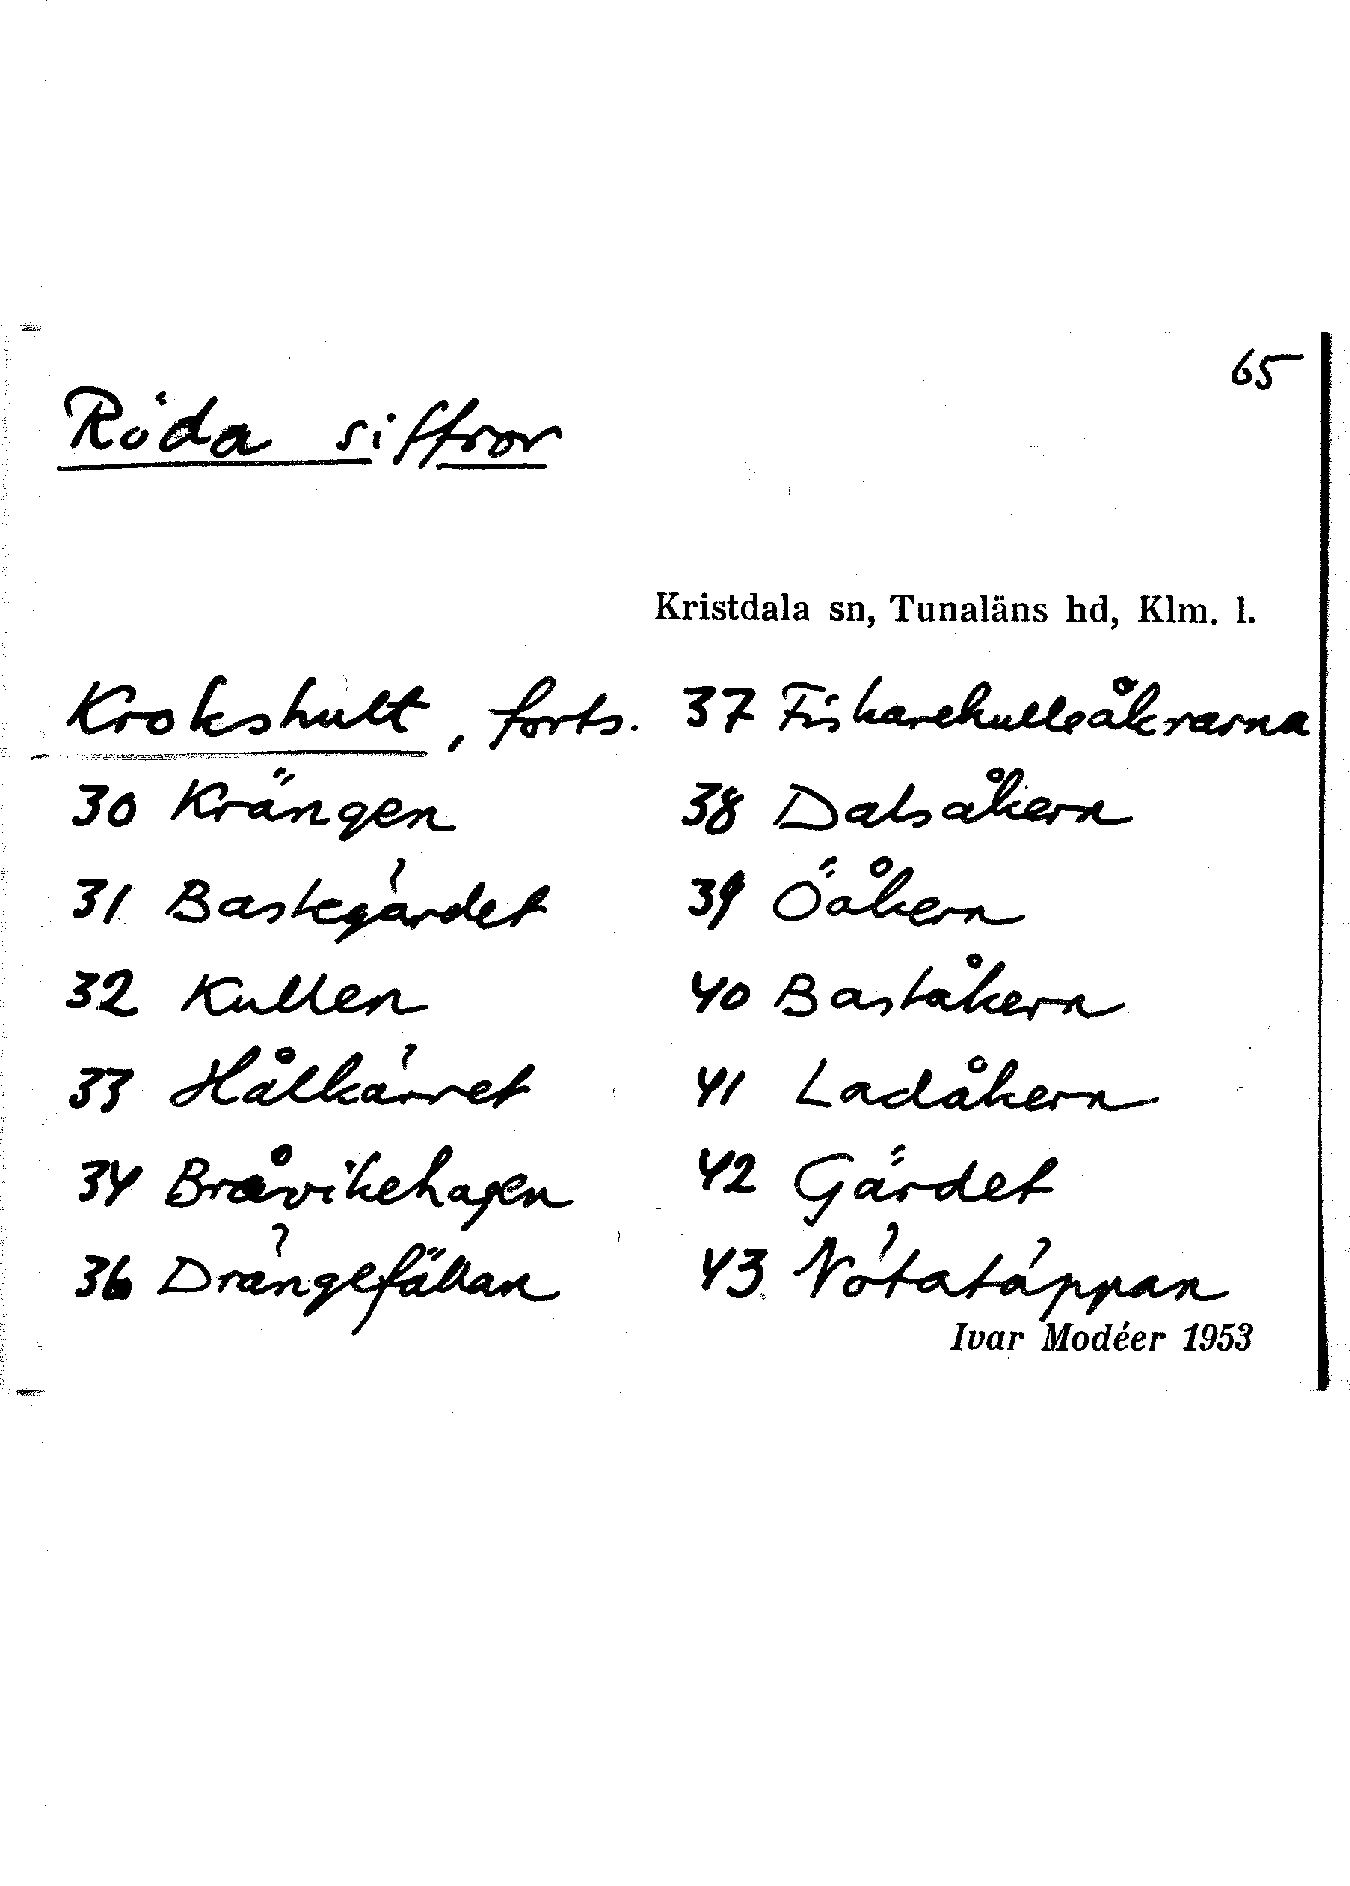 65
Röda siffror
Kristdala sn, Tunaläns hd, Klm. l.
Krokshult, forts.
30 Krängen
31 Bastegärdet
32 Kullen
33 Hålkärret
34 Bråvikehagen
36 Drängefällan
37 Fiskarekulleåkrarna
38 Dalsåkern
39 Öåkern
40 Baståkern
41 Ladåkern
42 Gärdet
43 Nötatäppan
Ivar Modéer 1953